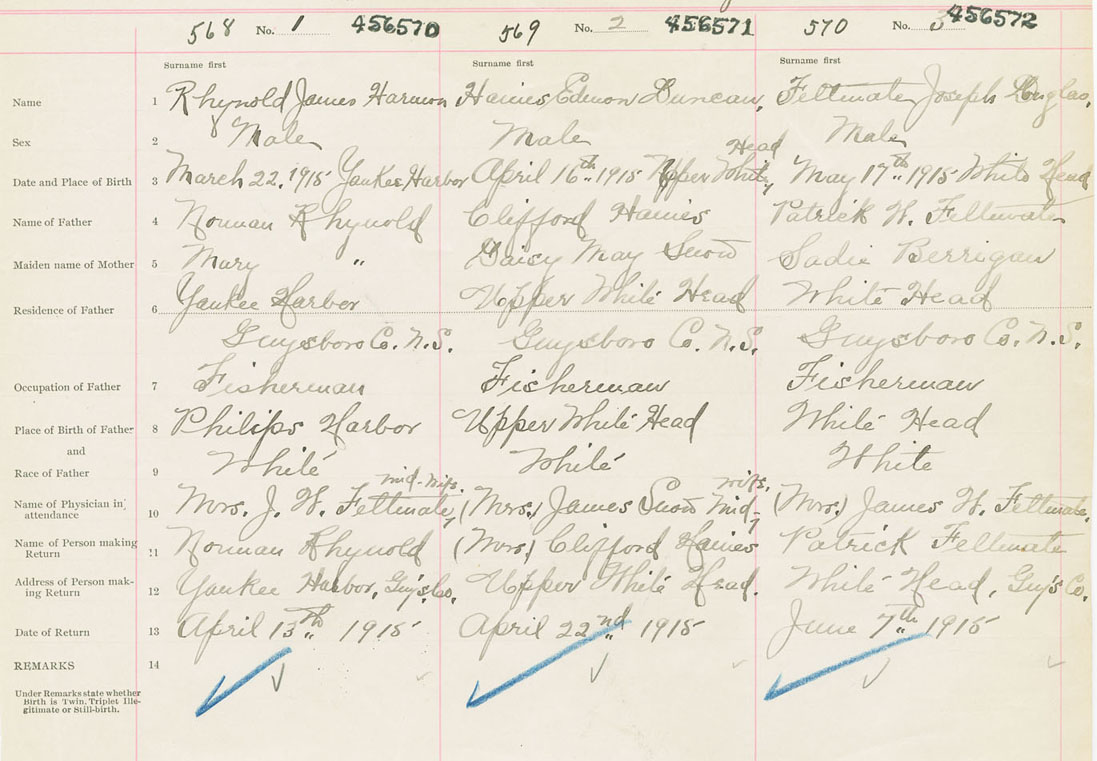 568 No. 1 456570 569 No. 2 456571 570 No. 3 456572
Surname first Surname first Surname first
Name 1 Rhynold James Harmon Haines Edmon Duncan, Feltmate Joseph Douglas,
Sex 2 Male Male Male
Head
Date and Place of Birth 3 March 22, 1915 Yankee Harbor April 16th 1915 Upper White, May 17th 1915 White Head
Name of Father 4 Norman Rhynold Clifford Haines Patrick W. Feltmate
Maiden name of Mother 5 Mary " Daisy May Snow Sadie Berrigan
Residence of Father 6 Yankee Harbor Upper White Head White Head
Guysboro Co. N.S. Guysboro Co. N.S. Guysboro Co. N.S.
Occupation of Father 7 Fisherman Fisherman Fisherman
Place of Birth of Father 8 Philips Harbor Upper White Head White Head
and
Race of Father 9 White White White
mid-wife. wife,
Name of Physician in attendance 10 Mrs. J. W. Feltmate, (Mrs.) James Snow mid- (Mrs.) James W. Feltmate,
Name of Person making Return 11 Norman Rhynold (Mrs.) Clifford Haines Patrick Feltmate
Address of Person mak-
ing Return 12 Yankee Harbor, Guy's Co. Upper White Head. White Head, Guy's Co.
Date of Return 13 April 13th 1915 April 22nd 1915 June 7th 1915
REMARKS 14
Under Remarks state whether
Birth is Twin. Triplet Ille-
gitimate or Still-birth.